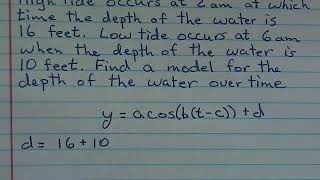 High tide occurs at 2 am at which
time the depth of the water is
16 feet. Low tide occurs at 6 am
when the depth of the water is
10 feet. Find a model for the
depth of the water over time
y = a cos(b(t-c)) + d
d = 16 + 10